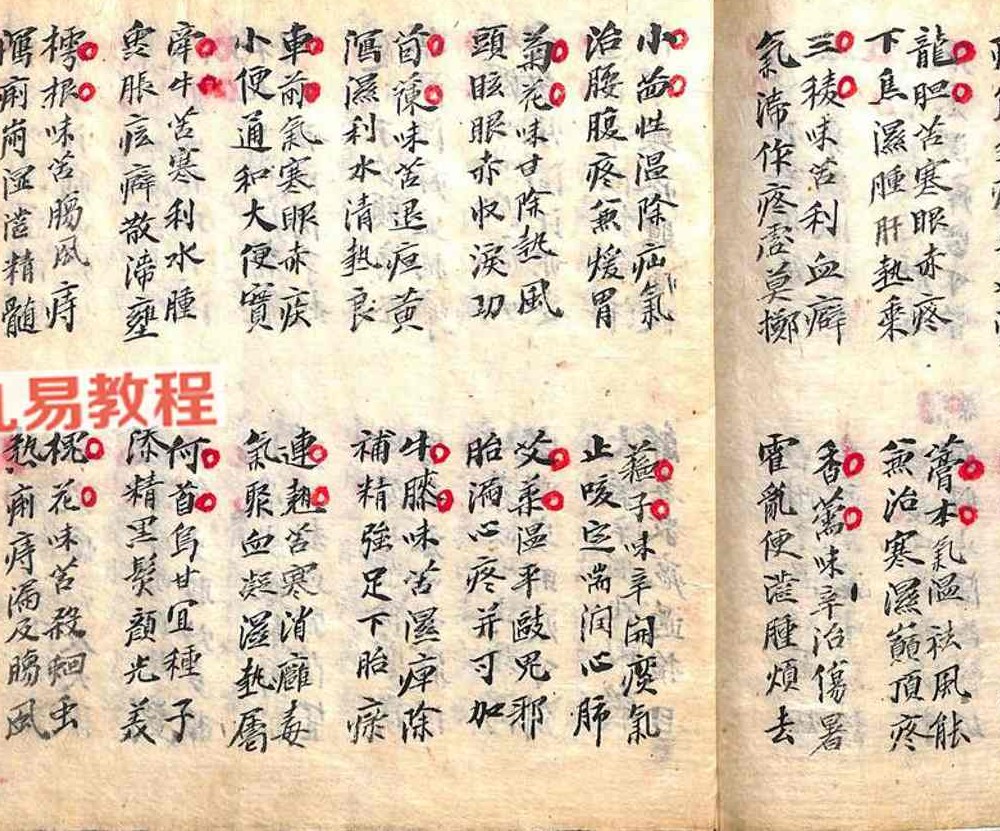 龍胆苦寒眼赤疼
下焦濕腫肝熱乗
三稜味苦利血癖
氣滯作疼虛莫擲
小茴性温除疝氣
治腰腹疼兼煖胃
菊花味甘除熱風
頭眩眼赤收淚功
茵蔯味苦退疸黄
瀉濕利水清熱良
車前氣寒眼赤疾
小便通和大便實
牽牛苦寒利水腫
蠱脹痃癖散滯壅
樗根味苦腸风痔
瀉痢崩湿澁精髓
藁本氣温袪風能
兼治寒濕巔頂疼
香薷味辛治傷暑
霍亂便澁腫煩去
蘇子味辛開痰氣
止咳定喘润心肺
艾柔温平敺鬼邪
胎漏心疼并可加
牛膝味苦濕痺除
補精強足下胎瘀
連翹苦寒消癰毒
氣聚血凝濕熱屬
何首烏甘宜種子
添精黑髮顔光美
槐花味苦殺蛔虫
熱痢痔漏及腸風
易教程